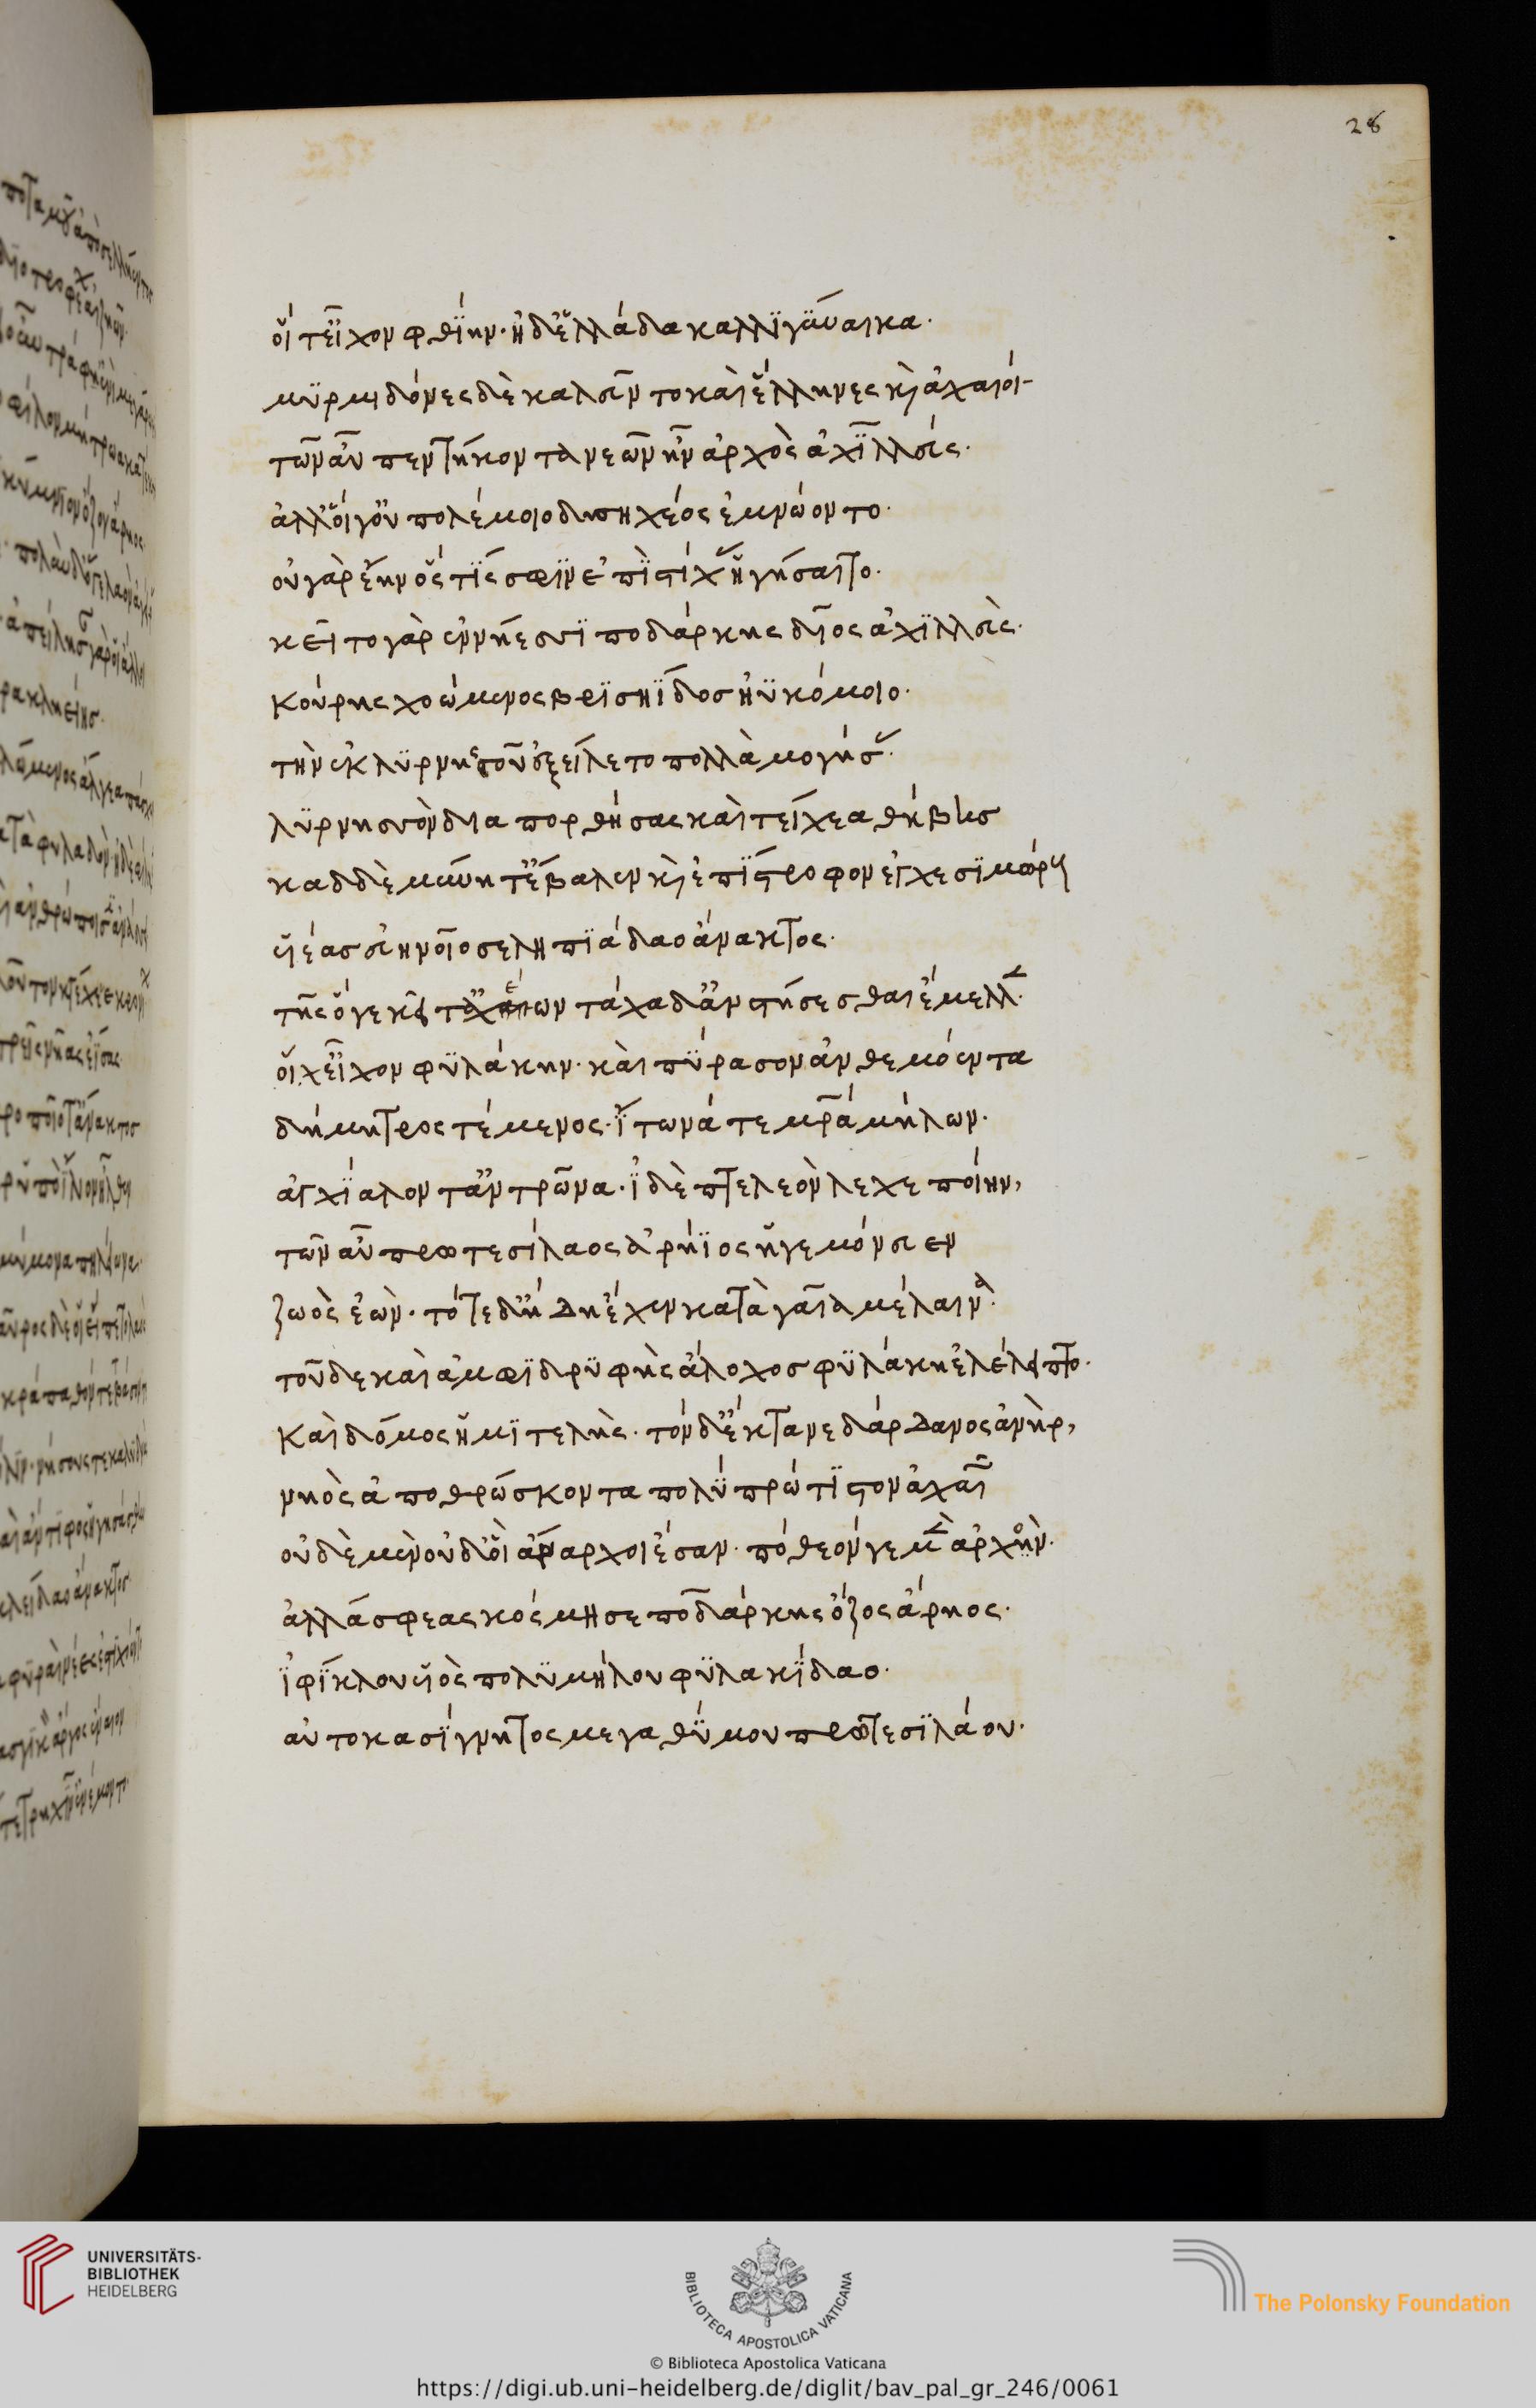 28
οἵ τ' εἶχον φθίην· ἠδ' ἑλλάδα καλλιγύναικα·
μυρμιδόνες δὲ καλεῦντο καὶ ἕλληνες καὶ ἀχαιοί·
τῶν αὖ πεντήκοντα νεῶν ἦν ἀρχὸς ἀχιλλεύς·
ἀλλ' οἵγ' οὐ πολέμοιο δυσηχέος ἐμνώοντο·
οὐ γὰρ ἔην ὅστις σφιν ἐπὶ στίχας ἡγήσαιτο·
κεῖτο γὰρ ἐν νήεσσι ποδάρκης δῖος ἀχιλλεὺς·
κούρης χωόμενος βρισηίδος ἠϋκόμοιο·
τὴν ἐκ λυρνησσοῦ ἐξείλετο πολλὰ μογήσας·
λυρνησσὸν διαπορθήσας καὶ τείχεα θήβης
καδδὲ μύνητ' ἔβαλεν καὶ ἐπίστροφον ἐγχεσιμώρους
υἱέας εὐηνοῖο σεληπιάδαο ἄνακτος·
τῆς ὅγε κεῖτ' ἀχέων τάχα δ' ἀνστήσεσθαι ἔμελλεν·
οἵ δ' εἶχον φυλάκην· καὶ πύρασον ἀνθεμόεντα
δήμητρος τέμενος· ἴτωνά τε μητέρα μήλων·
ἀγχίαλόν τ' ἀντρῶνα· ἰδὲ πτελεὸν λεχεποίην,
τῶν αὖ πρωτεσίλαος ἀρήϊος ἡγεμόνευεν
ζωὸς ἐὼν· τότε δ' ἤδη ἔχεν κατὰ γαῖα μέλαινα·
τοῦ δὲ καὶ ἀμφιδρυφὴς ἄλοχος φυλάκη ἐλέλειπτο·
καὶ δόμος ἡμιτελὴς· τὸν δ' ἔκτανε δάρδανος ἀνὴρ,
νηὸς ἀποθρώσκοντα πολὺ πρώτιστον ἀχαιῶν
οὐδὲ μὲν οὐδ' οἳ ἄναρχοι ἔσαν· πόθεόν γε μὲν ἀρχὸν·
ἀλλά σφεας κόσμησε ποδάρκης ὄζος ἄρηος·
ἰφίκλου υἱὸς πολυμήλου φυλακίδαο·
αὐτοκασίγνητος μεγαθύμου πρωτεσιλάου·
UNIVERSITÄTS-
BIBLIOTHEK
HEIDELBERG
BIBLIOTECA APOSTOLICA VATICANA
The Polonsky Foundation
© Biblioteca Apostolica Vaticana
https://digi.ub.uni-heidelberg.de/diglit/bav_pal_gr_246/0061